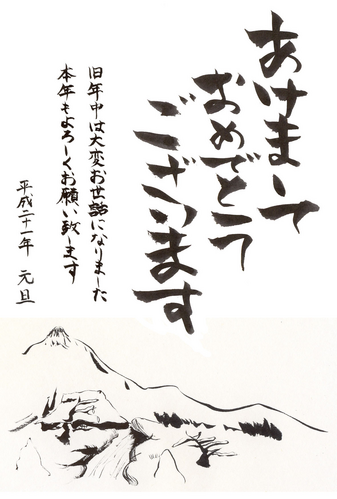 あけまして
おめでとう
ございます
旧年中は大変お世話になりました
本年もよろしくお願い致します
平成二十一年 元旦